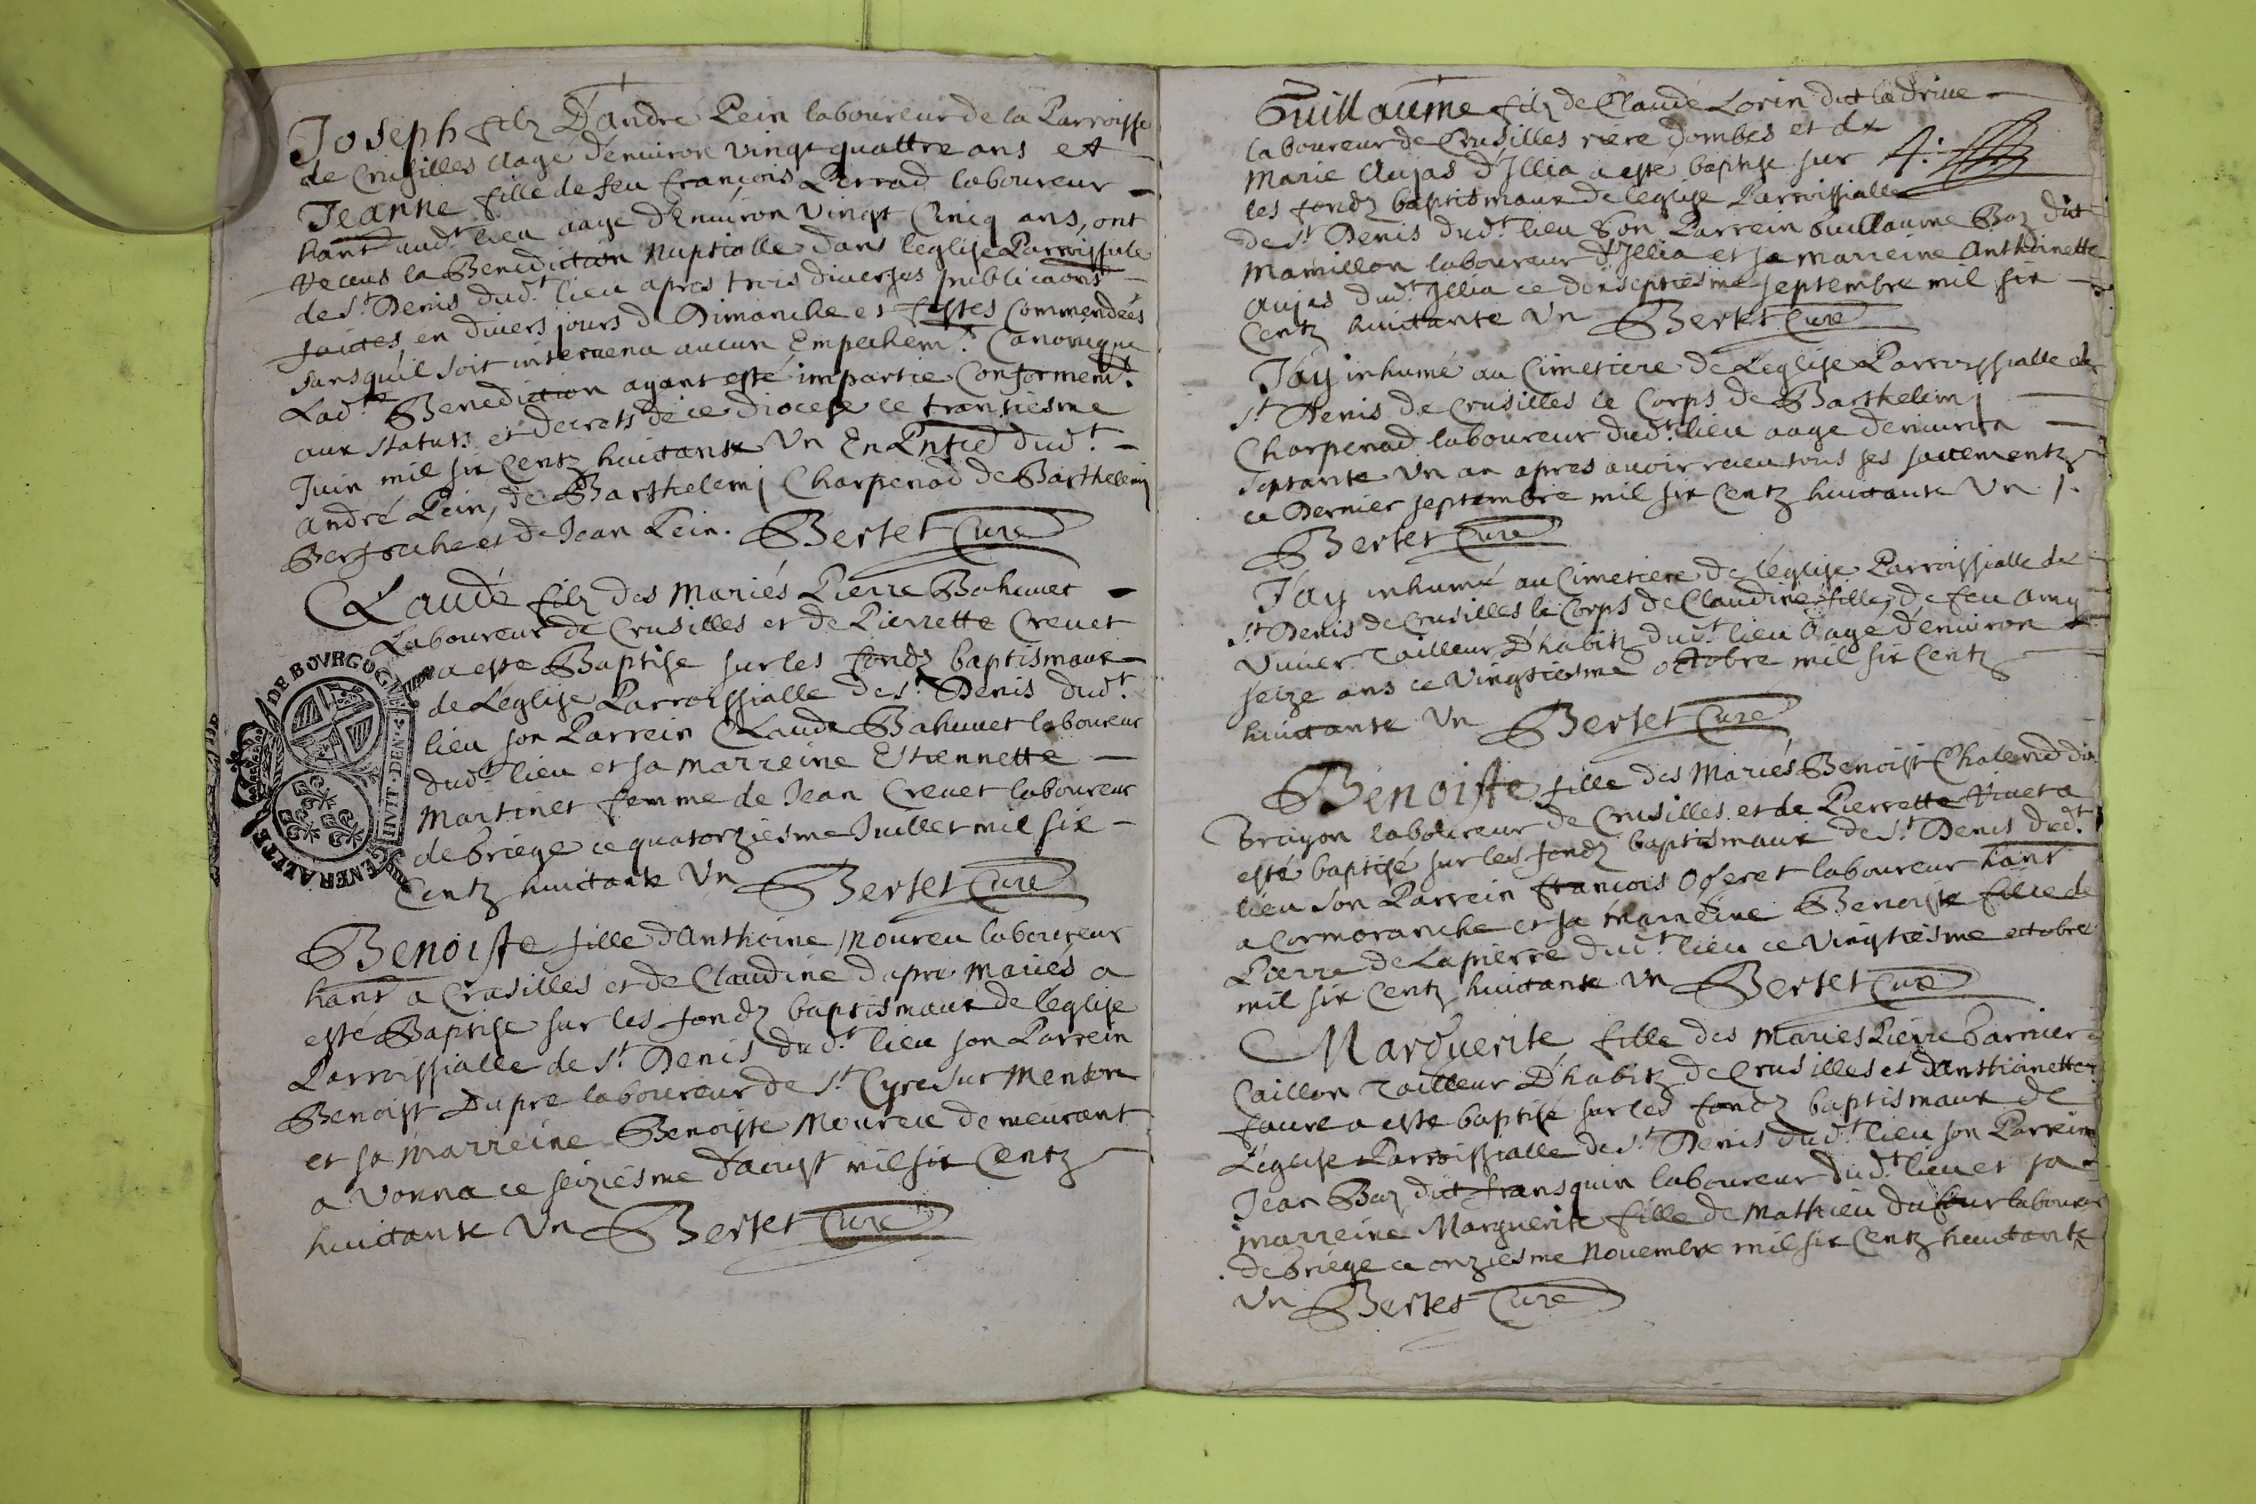 Joseph filz D'andré Pein laboureur de la Parroisse
de Crusilles aagé d'enuiron vingt quattre ans et
Jeanne fille de feu francois Perrad laboureur
hant audt. lieu aagé d'Enuiron vingt Cincq ans, ont
receus la Benediction Nuptialle dans leglise Parroissiale
de St. Denis dudt. lieu apres trois diuerses publicaons
faictes en diuers jours d Dimanche et festes Commendées
sans quil soit interuenu aucun Empechemt. Canonique
Ladte Benediction ayant esté impartie Conformemt.
aux statuts et decrets de ce diocese ce
Juin mil six Centz huictante Vn En dudt.
André Pein, de Barthelemj Charpenad de Barthelemj
et de Jean Pein. Bertet Curé
Claude filz des Mariés Pierre Bahuuet
Laboureur de Crusilles et de Pierrette Creuet
a este Baptise sur les fondz baptismaux
de Léglise Parroissialle de St. Denis dudt.
lieu son Parrein Claude Bahuuet laboureur
dudt. lieu et sa Marreine Estiennette
Martinet femme de Jean Creuet laboureur
de briege ce quatorziesme Juillet mil six
Centz huictante Vn Bertet Curé
DE BOVRGOGNE
HVIT DEN
GENERALITE
Benoiste fille d'Anthoine Moureu laboureur
hant a Crusilles et de Claudine dupre Mariés a
esté Baptise sur les fondz baptismaux de léglise
Parroissialle de St. Denis dudt. lieu son Parrein
Benoist Dupre laboureur de St. Cyre sur Menton
et sa Marreine Benoiste Moureu demeurant
a Vonna ce seiziesme d'aoust mil six Centz
huictante Vn Bertet Curé
Guillaume filz de Claude Lorin dit
laboureur de Crusilles riere dombes et de
Marie Aujas d'Illia a esté baptise sur 4.
les fondz baptismaux de leglise Parroissialle
de St. Denis dudt. lieu son Parrein Guillaume Baz dit
Mamillon laboureur d'Illia et sa Marreine Anthoinette
Aujas dudt. Illia ce dixseptiesme septembre mil six
Centz huictante Vn Bertet Curé
J'ay inhumé au Cimetiere de Léglise Parroissialle de
St. Denis de Crusilles le Corps de Barthelemj
Charpenad laboureur dudt. lieu aagé denuiron
septante Vn an apres auoir receu tous ses sacrementz
ce Dernier septembre mil six Centz huictante Vn
Bertet Curé
J'ay inhumé au Cimetiere de l'église Parroissialle de
St. Denis de Crusilles le Corps de Claudine fille de feu Amy
Viuier Tailleur D'habitz dudt. lieu aagé d'enuiron
seize ans ce Vingtiesme octobre mil six Centz
huictante Vn Bertet Curé
Benoiste fille des Mariés Benoist dit
laboureur de Crusilles et de Pierrette Viuet a
esté baptisé sur les fondz baptismaux de St. Denis dudt.
lieu son Parrein francois laboureur hant
a Cormoranche et sa Marreine Benoiste fille de
Pierre de Lapierre dudt. lieu ce Vingtiesme octobre
mil six Centz huictante Vn Bertet Curé
Marguerite fille des Maries Pierre Garnier
Caillon Tailleur D'habitz de Crusilles et d'Anthoinette
faure a este baptisé sur les fondz baptismaux de
Léglise Parroissialle de St. Denis dudt. lieu son Parrein
Jean Baz dit fransquin laboureur dudt. lieu et sa
Marreine Marguerite fille de Mathieu dufour laboureur
de briege ce onziesme Nouembre mil six Centz huictante
Vn Bertet Curé